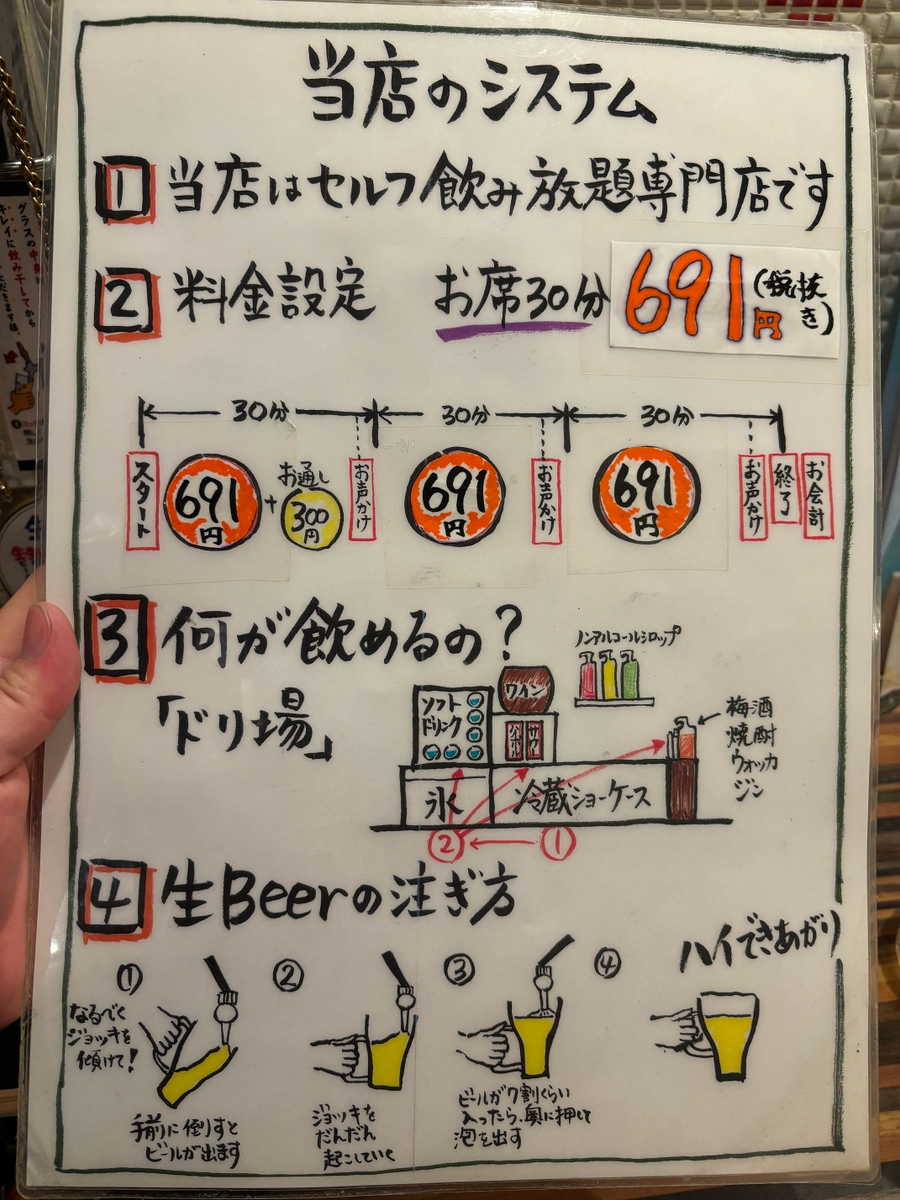 当店のシステム
1 当店はセルフ飲み放題専門店です
2 料金設定 お席30分 691円(税抜き)
30分 30分 30分
スタート
691円
+
お通し
300円
お声かけ
691円
お声かけ
691円
お声かけ
終了
お会計
3 何が飲めるの?
「ドリ場」
ノンアルコールシロップ
ワイン
ソフト
ドリンク
氷
冷蔵ショーケース
梅酒
焼酎
ウォッカ
ジン
② ①
4 生Beerの注ぎ方
ハイできあがり
①
なるべく
ジョッキを
傾けて!
手前に倒すと
ビールが出ます
②
ジョッキを
だんだん
起こしていく
③
ビールが7割くらい
入ったら、奥に押して
泡を出す
④